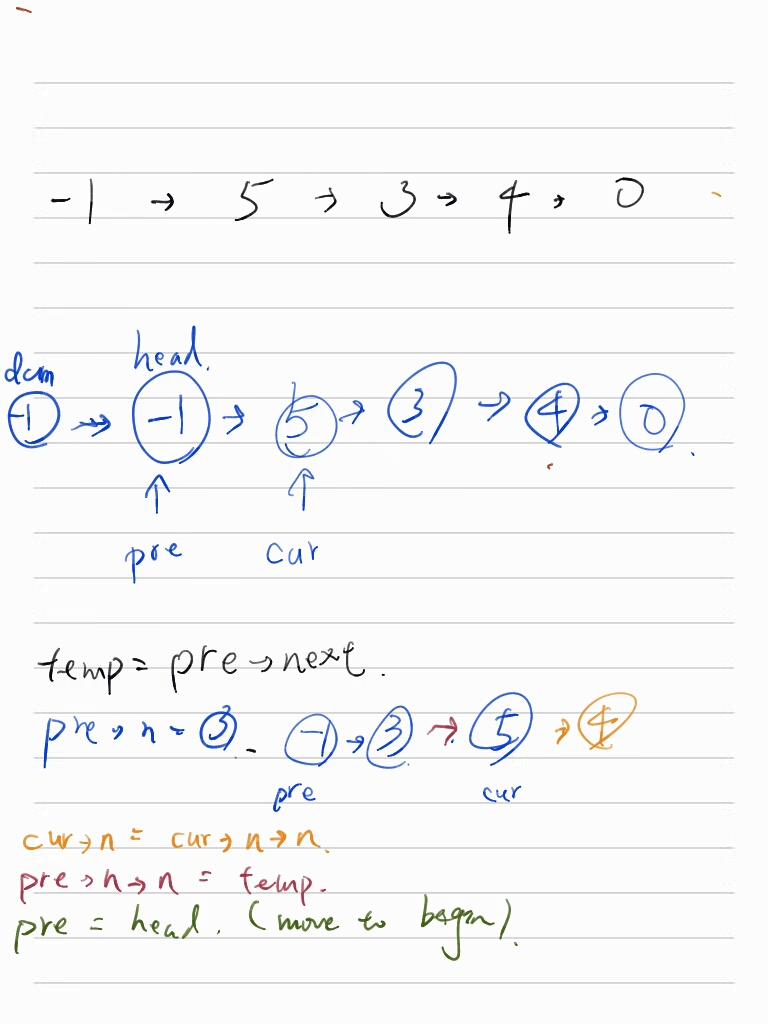 -1 → 5 → 3 → 4 → 0
dum head.
-1 → -1 → 5 → 3 → 4 → 0.
↑ ↑
pre cur
temp = pre → next.
pre → n = 3. -1 → 3 → 5 → 4
pre cur
cur → n = cur → n → n.
pre → n → n = temp.
pre = head. (move to begin).